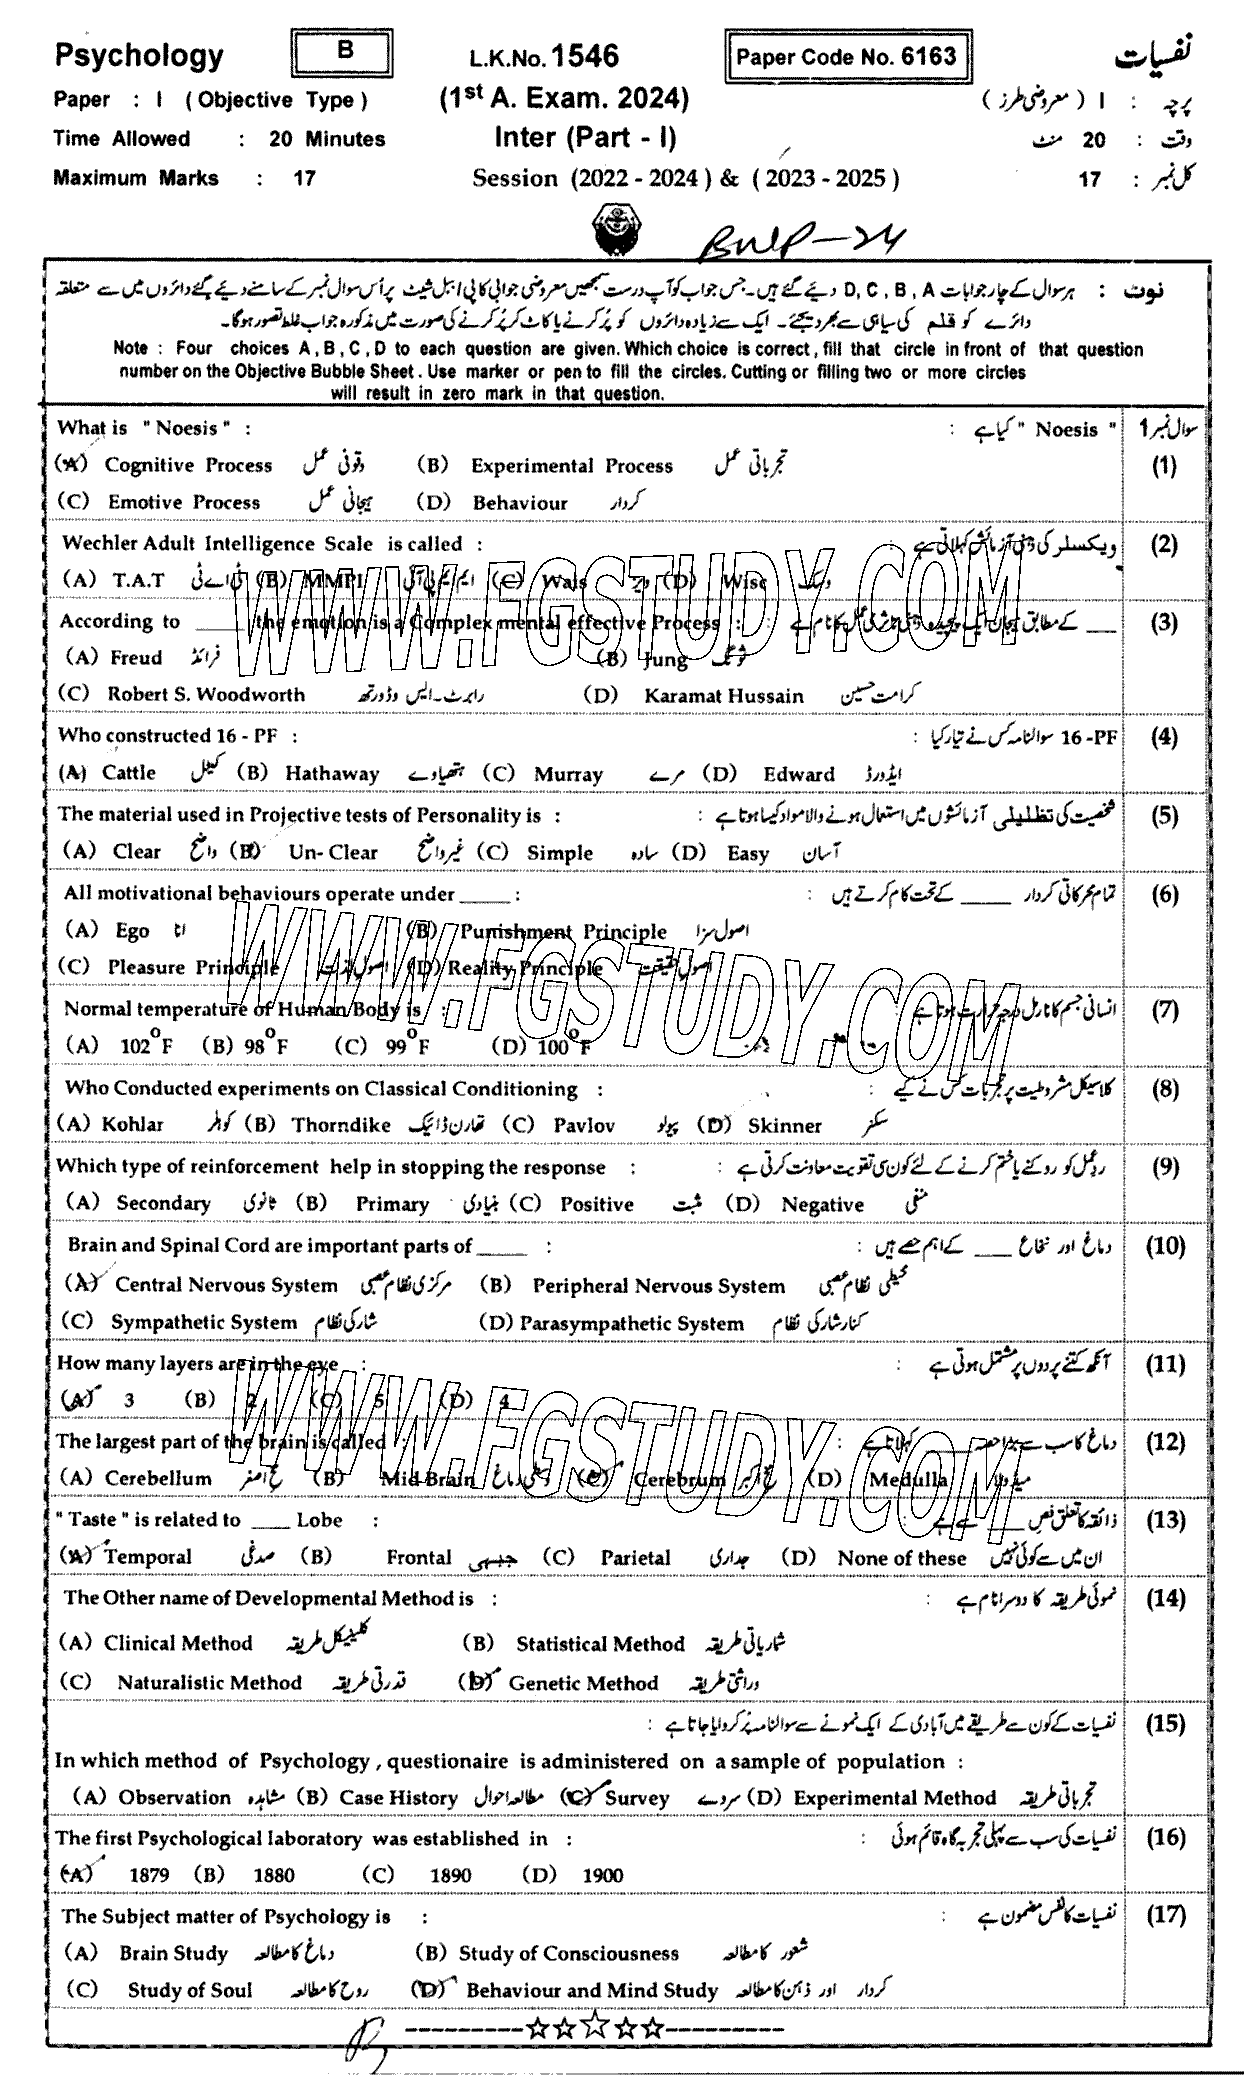 Psychology B L.K.No. 1546 Paper Code No. 6163 نفسیات
Paper : I ( Objective Type ) (1st A. Exam. 2024) پرچہ : I ( معروضی طرز )
Time Allowed : 20 Minutes Inter (Part - I) وقت : 20 منٹ
Maximum Marks : 17 Session (2022 - 2024 ) & ( 2023 - 2025 ) کل نمبر : 17
BWP-24
نوٹ : ہر سوال کے چار جوابات D, C, B, A دیئے گئے ہیں۔ جس جواب کو آپ درست سمجھیں معروضی جوابی کاپی / ببل شیٹ پر اُس سوال نمبر کے سامنے دیئے گئے دائروں میں سے متعلقہ
دائرے کو قلم کی سیاہی سے بھر دیجئے۔ ایک سے زیادہ دائروں کو پُر کرنے یا کاٹ کر پُر کرنے کی صورت میں مذکورہ جواب غلط تصور ہوگا۔
Note : Four choices A , B , C , D to each question are given. Which choice is correct , fill that circle in front of that question
number on the Objective Bubble Sheet . Use marker or pen to fill the circles. Cutting or filling two or more circles
will result in zero mark in that question.
What is " Noesis " : " Noesis " کیا ہے : سوال نمبر 1
(A) Cognitive Process وقوفی عمل (B) Experimental Process تجرباتی عمل (1)
(C) Emotive Process ہیجانی عمل (D) Behaviour کردار
Wechler Adult Intelligence Scale is called : ویکسلر کی ذہنی آزمائش کہلاتی ہے (2)
(A) T.A.T ٹی اے ٹی (B) MMPI ایم ایم پی آئی (C) Wais ویز (D) Wisc وسک
According to ____ the emotion is a Complex mental effective Process : ___ کے مطابق ہیجان ایک پیچیدہ ذہنی تاثری عمل کا نام ہے : (3)
(A) Freud فرائڈ (B) Jung ژونگ
(C) Robert S. Woodworth رابرٹ۔ایس وڈورتھ (D) Karamat Hussain کرامت حسین
Who constructed 16 - PF : 16 -PF سوالنامہ کس نے تیار کیا : (4)
(A) Cattle کیٹل (B) Hathaway ہتھیاوے (C) Murray مرے (D) Edward ایڈورڈ
The material used in Projective tests of Personality is : شخصیت کی تظلیلی آزمائشوں میں استعمال ہونے والا مواد کیسا ہوتا ہے : (5)
(A) Clear واضح (B) Un- Clear غیر واضح (C) Simple سادہ (D) Easy آسان
All motivational behaviours operate under _____ : تمام محرکاتی کردار _____ کے تحت کام کرتے ہیں : (6)
(A) Ego انا (B) Punishment Principle اصول سزا
(C) Pleasure Principle اصول لذت (D) Reality Principle اصول حقیقت
Normal temperature of Human Body is : انسانی جسم کا نارمل درجہ حرارت ہوتا ہے : (7)
(A) 102°F (B) 98°F (C) 99°F (D) 100°F
Who Conducted experiments on Classical Conditioning : کلاسیکل مشروطیت پر تجربات کس نے کیے : (8)
(A) Kohlar کوہلر (B) Thorndike تھارن ڈائیک (C) Pavlov پیولو (D) Skinner سکنر
Which type of reinforcement help in stopping the response : ردِعمل کو روکنے یا ختم کرنے کے لئے کون سی تقویت معاونت کرتی ہے : (9)
(A) Secondary ثانوی (B) Primary بنیادی (C) Positive مثبت (D) Negative منفی
Brain and Spinal Cord are important parts of _____ : دماغ اور نخاع ____ کے اہم حصے ہیں : (10)
(A) Central Nervous System مرکزی نظام عصبی (B) Peripheral Nervous System محیطی نظام عصبی
(C) Sympathetic System شارکی نظام (D) Parasympathetic System کنار شارکی نظام
How many layers are in the eye : آنکھ کتنے پردوں پر مشتمل ہوتی ہے : (11)
(A) 3 (B) 2 (C) 5 (D) 4
The largest part of the brain is called : دماغ کا سب سے بڑا حصہ _____ کہلاتا ہے : (12)
(A) Cerebellum مخ اصغر (B) Mid Brain وسطی دماغ (C) Cerebrum مخ اکبر (D) Medulla میڈولا
" Taste " is related to ____ Lobe : ذائقہ کا تعلق نص ____ سے ہے : (13)
(A) Temporal صدغی (B) Frontal جبہی (C) Parietal جداری (D) None of these ان میں سے کوئی نہیں
The Other name of Developmental Method is : نموئی طریقہ کا دوسرا نام ہے : (14)
(A) Clinical Method کلینیکل طریقہ (B) Statistical Method شماریاتی طریقہ
(C) Naturalistic Method قدرتی طریقہ (D) Genetic Method وراثتی طریقہ
نفسیات کے کون سے طریقے میں آبادی کے ایک نمونے سے سوالنامہ پُر کروایا جاتا ہے : (15)
In which method of Psychology , questionaire is administered on a sample of population :
(A) Observation مشاہدہ (B) Case History مطالعہ احوال (C) Survey سروے (D) Experimental Method تجرباتی طریقہ
The first Psychological laboratory was established in : نفسیات کی سب سے پہلی تجربہ گاہ قائم ہوئی : (16)
(A) 1879 (B) 1880 (C) 1890 (D) 1900
The Subject matter of Psychology is : نفسیات کا نفس مضمون ہے : (17)
(A) Brain Study دماغ کا مطالعہ (B) Study of Consciousness شعور کا مطالعہ
(C) Study of Soul روح کا مطالعہ (D) Behaviour and Mind Study کردار اور ذہن کا مطالعہ
WWW.FGSTUDY.COM
WWW.FGSTUDY.COM
WWW.FGSTUDY.COM